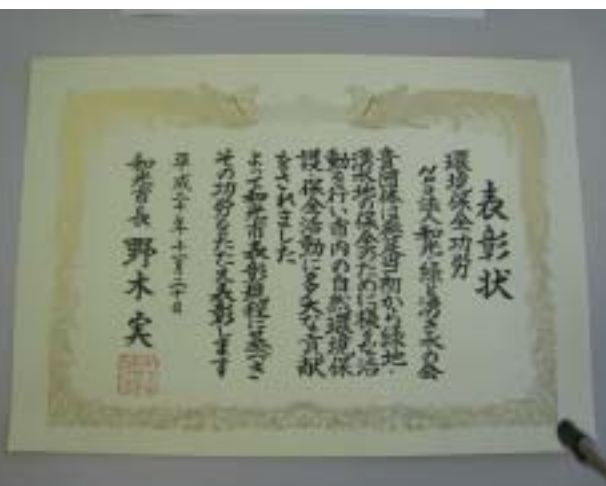 表彰状
環境保全功労
NPO法人和光・緑と湧き水の会
貴団体は発足当初から緑地・
湧水地の保全のために様々な活
動を行い市内の自然環境保
護・保全活動に多大な貢献
をされました
よって和光市表彰規程に基づき
その功労をたたえ表彰します
平成二十年十一月二十日
和光市長 野木 実